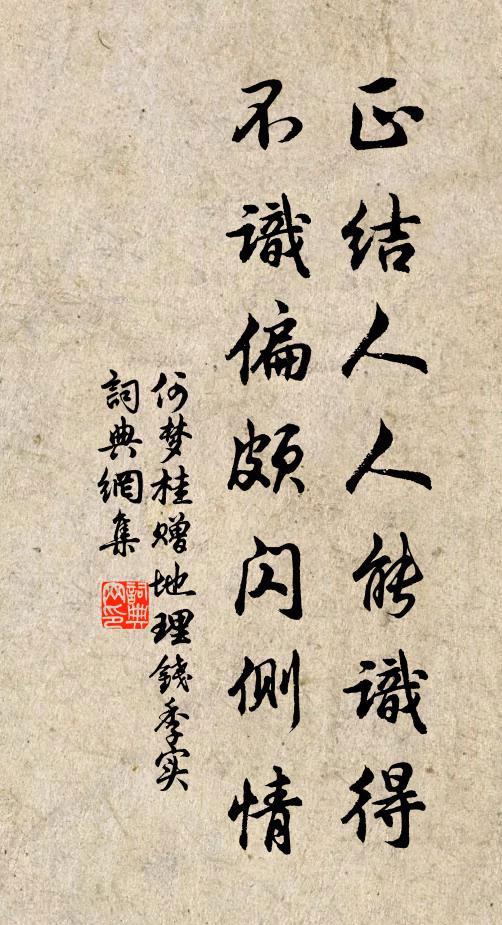 正结人人能識得
不識偏頗闪側情
何梦桂赠地理錢季实
詞典網集
詞典
网印